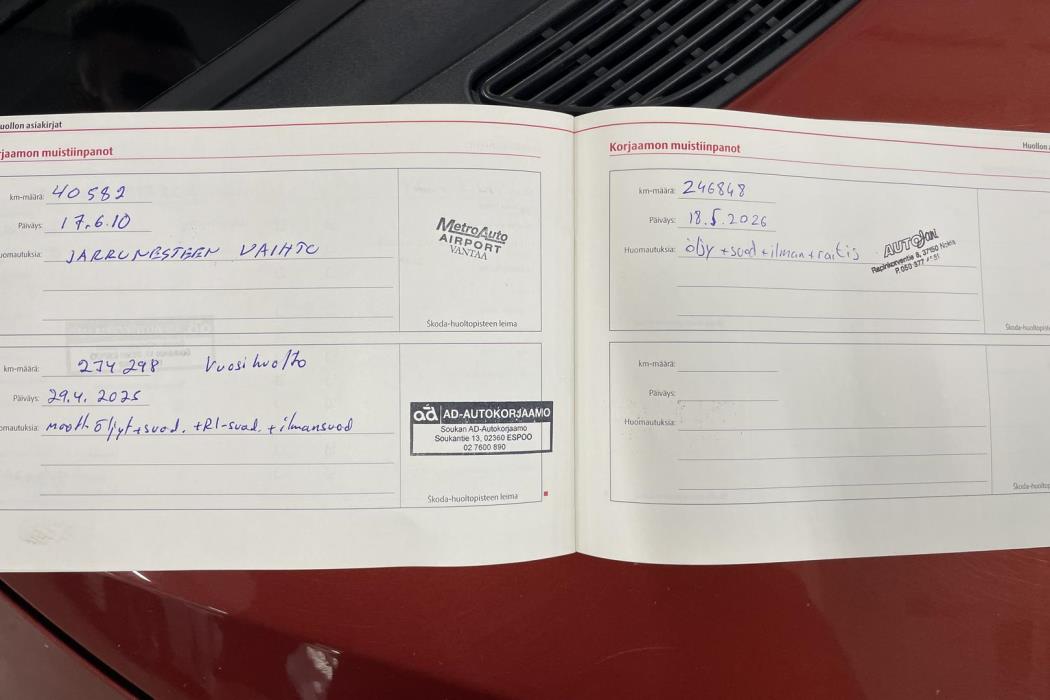 uollon asiakirjat
jaamon muistiinpanot
km-määrä: 40582
Päiväys: 17.6.10
omautuksia: JARRUNESTEEN VAIHTO
MetroAuto
AIRPORT
VANTAA
Škoda-huoltopisteen leima
km-määrä: 234298 Vuosihuolto
Päiväys: 29.4.2025
omautuksia: moott. Öljyt+suod. +RI-suod. + ilmansuod
ad AD-AUTOKORJAAMO
Soukan AD-Autokorjaamo
Soukantie 13, 02360 ESPOO
02 7600 890
Škoda-huoltopisteen leima
Huollon a
Korjaamon muistiinpanot
km-määrä: 246848
Päiväys: 18.5.2026
Huomautuksia: öljy +suod +ilman+raitis
AUTOJoNi
Rapinkorventie 8, 37150 Nokia
P.050 377
Škoda-huoltopist
km-määrä:
Päiväys:
Huomautuksia:
Škoda-huoltop